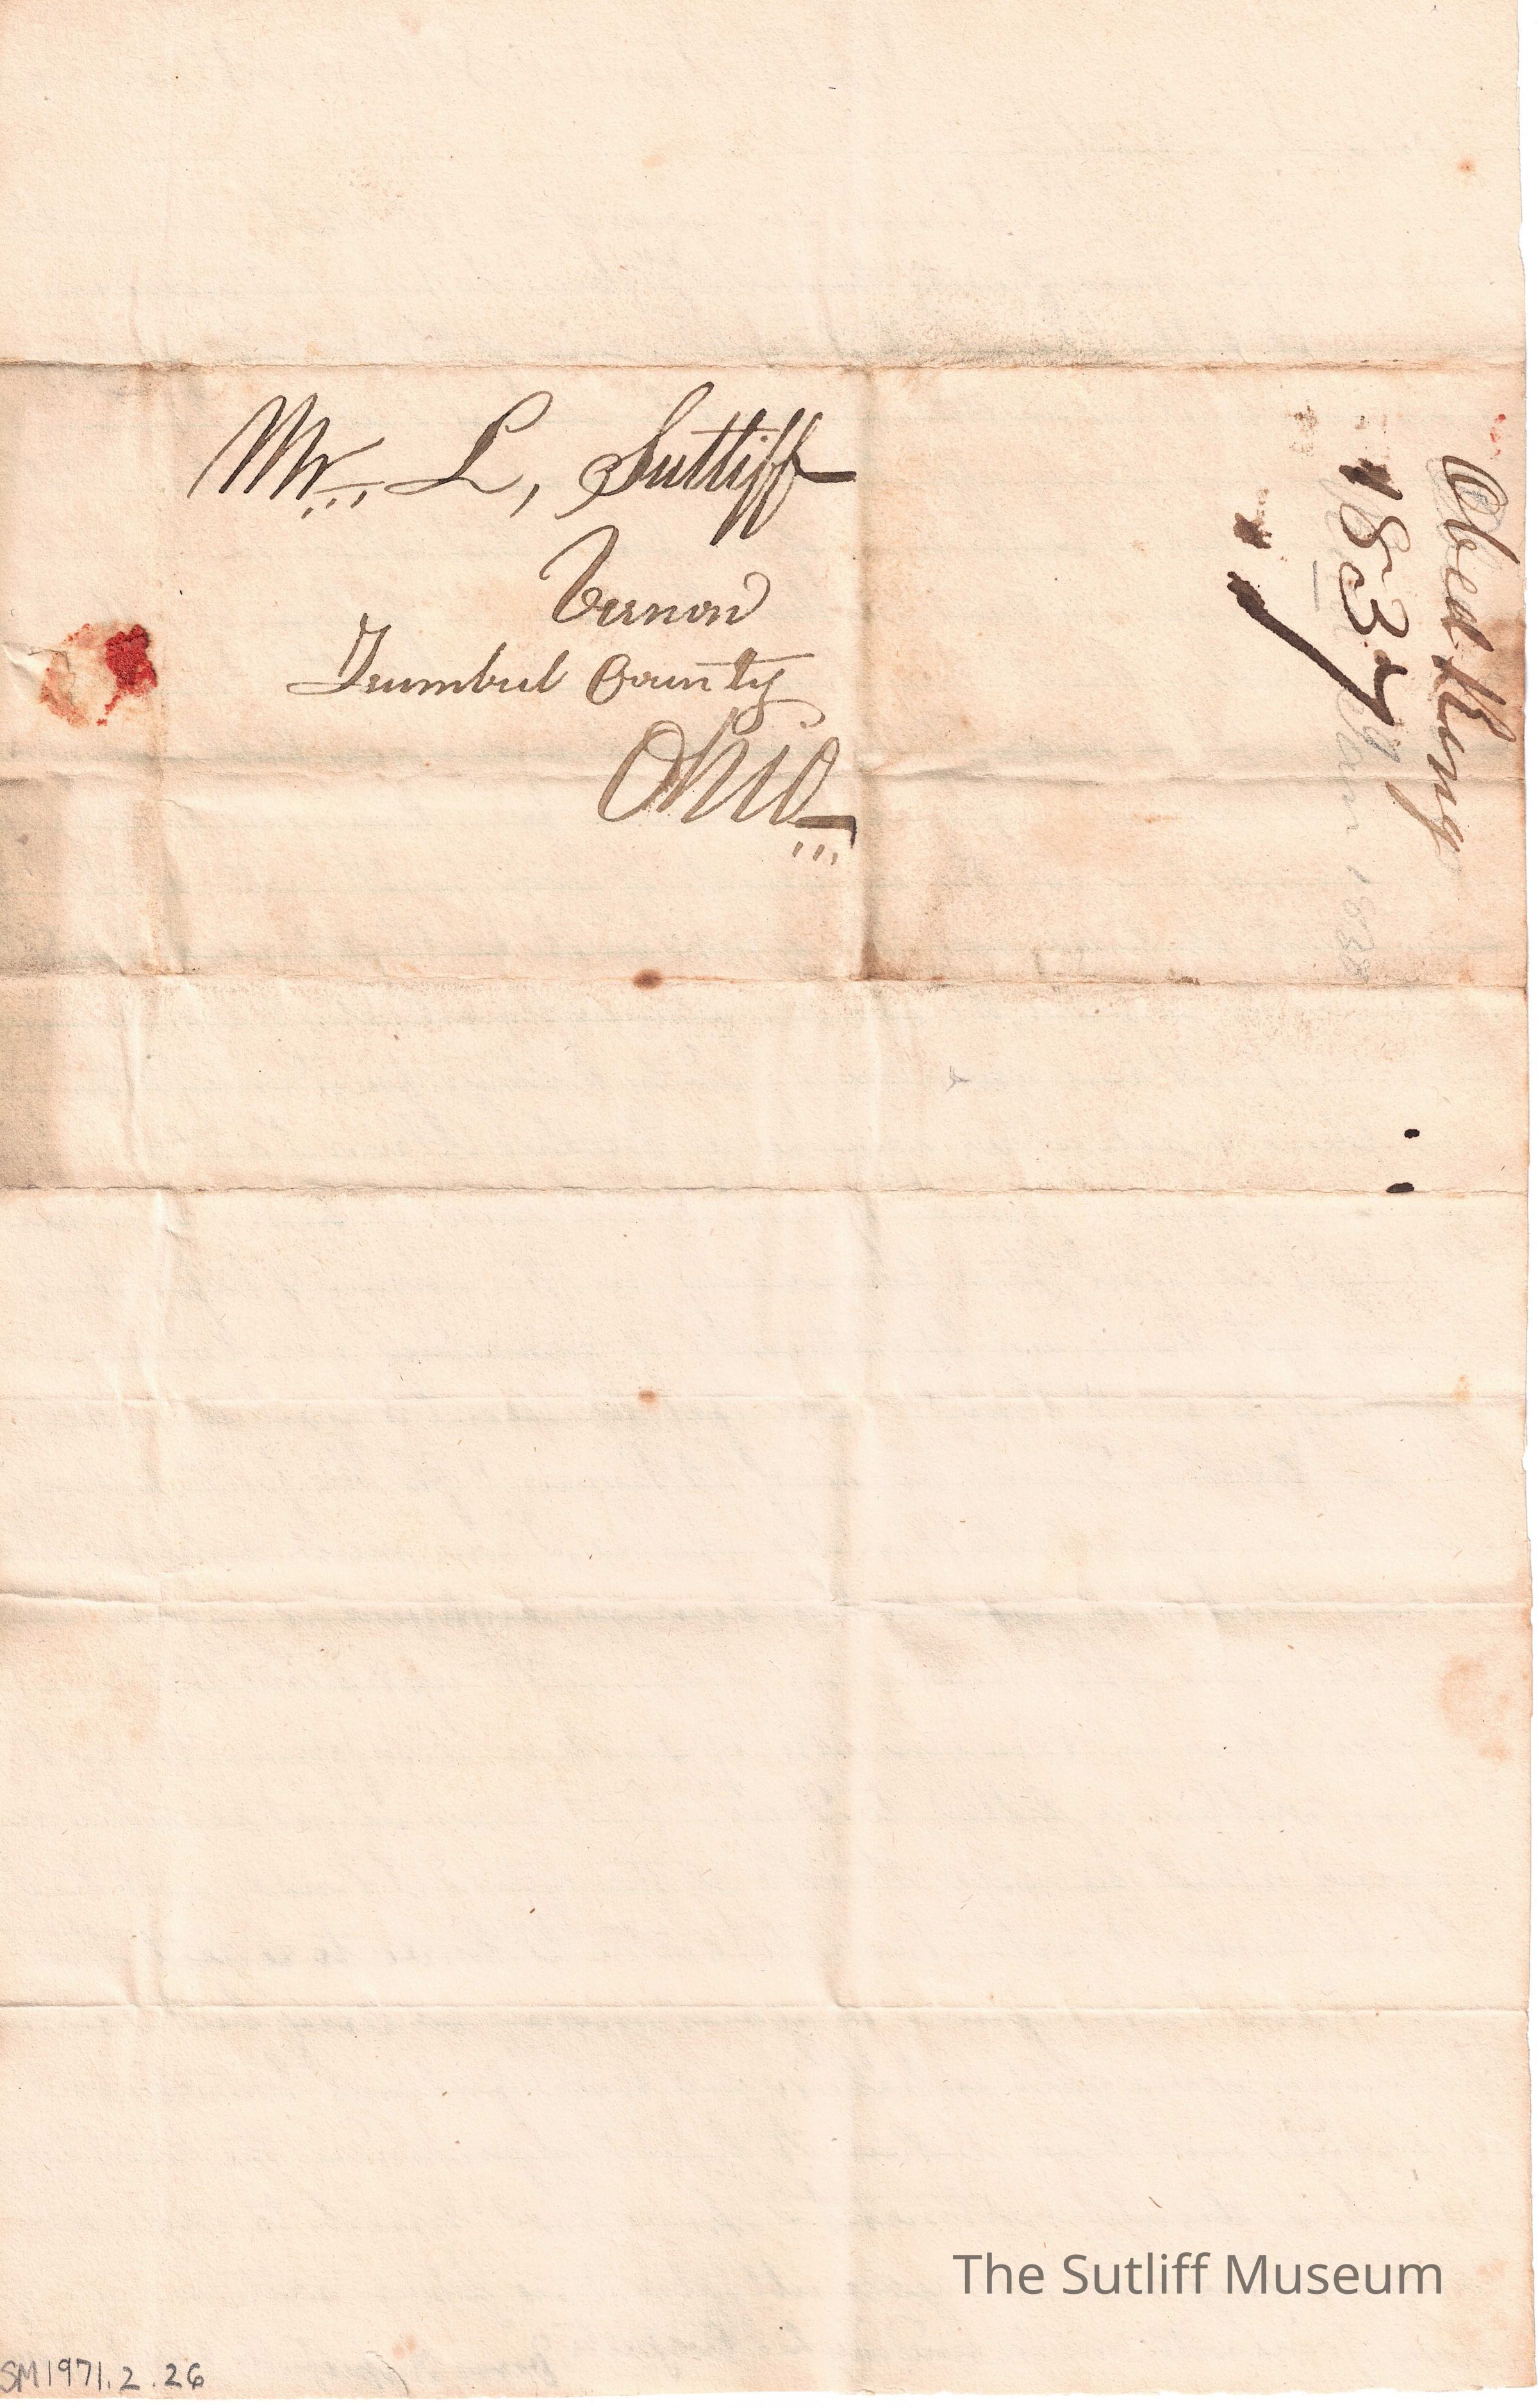 Mr. L, Sutliff
Vernon
Trumbul County
Ohio
Obed King
1837
Jan 1838
The Sutliff Museum
SM1971.2.26